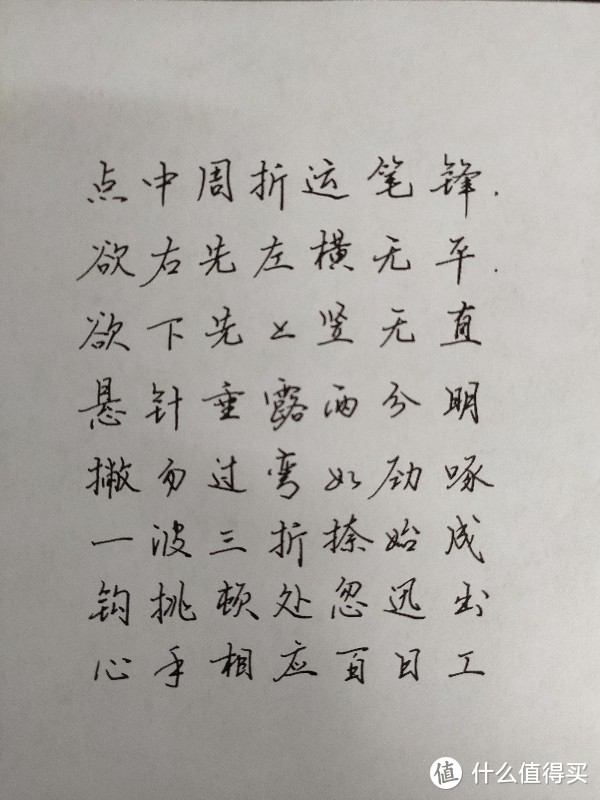 点中周折运笔锋.
欲右先左横无平.
欲下先上竖无直
悬针垂露两分明
撇勿过弯如劲啄
一波三折捺始成
钩挑顿处忽迅出
心手相应百日工
值 什么值得买